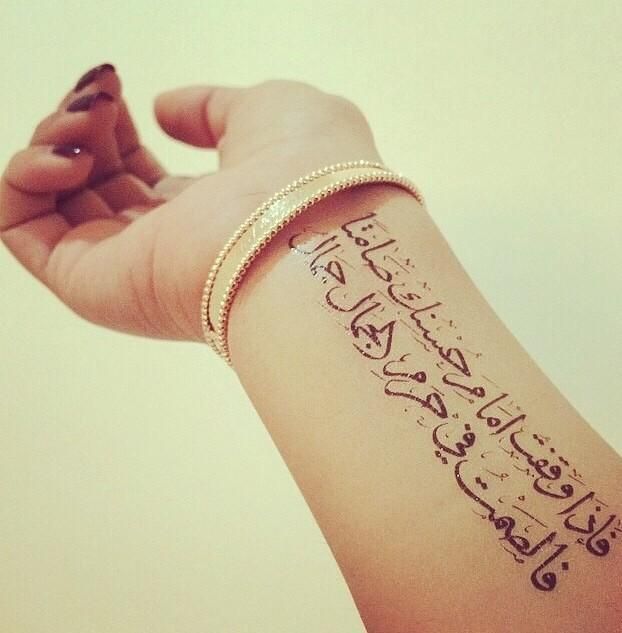 فإذا وقفت امام حسنك صامتا
فالصمت في حرم الجمال جمال